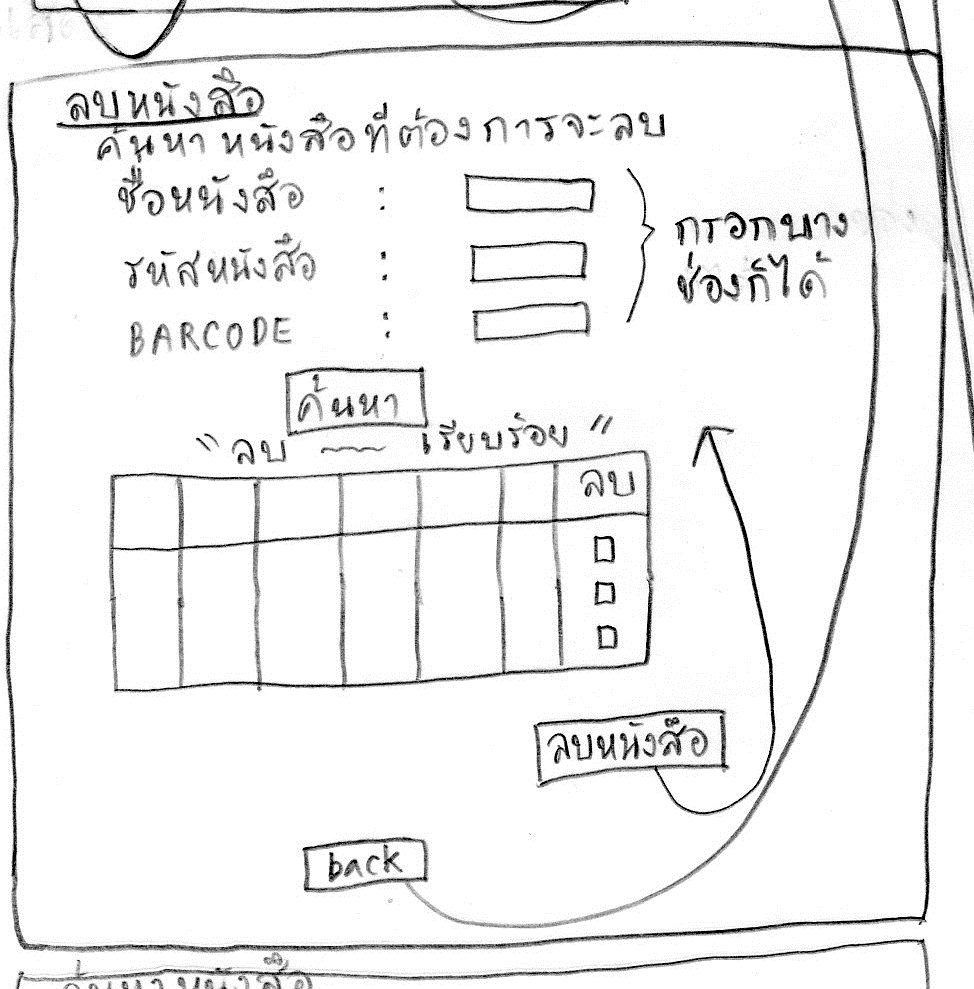 ลบหนังสือ
ค้นหาหนังสือที่ต้องการจะลบ
ชื่อหนังสือ :
รหัสหนังสือ :
BARCODE :
กรอกบาง
ช่องก็ได้
ค้นหา
"ลบ ~~~ เรียบร้อย"
ลบ
ลบหนังสือ
back
ค้นหาหนังสือ